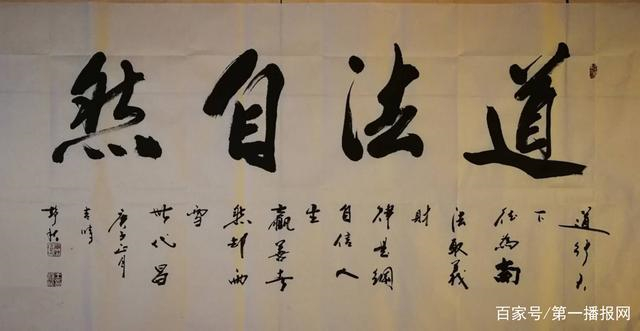 道法自然
道行天
下
德為商
法取義
財
律是綱
自信人
生
贏善者
然却雨
雪
世代昌
庚子正月
吉時
百家号/第一播报网